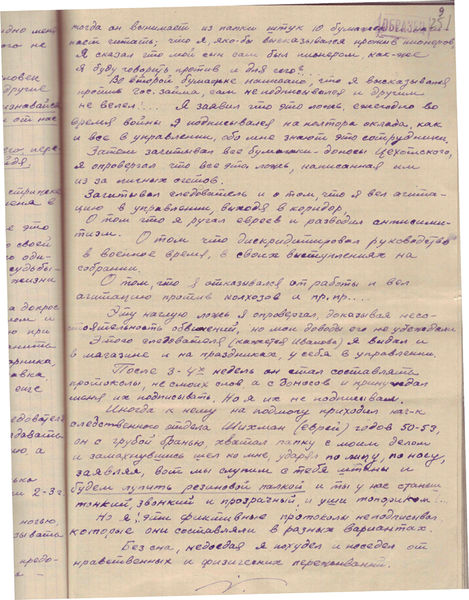 9
ОБРАЗЕЦ
251
когда он вынимает из папки штук 10 бумажек
нает читать, что я, яко-бы высказывался против пионеров,
Я сказал что мой сын сам был пионером как-же
я буду говорить против и для чего?..
Во второй бумажке написано, что я высказывался
против гос. займа, сам не подписывался и другим
не велел!... Я заявил что это ложь, ежегодно во
время войны я подписывался на полтора оклада, как
и все в управлении, обо мне знают это сотрудники.
Затем зачитывал все бумажки - доносы Цехотского,
я опровергал что все это ложь, написанная им
из за личных счетов.
Зачитывал следователь и о том, что я вел агита-
цию в управлении выходя в коридор.
О том что я ругал евреев и разводил антисими-
тизм. О том что дискридитировал руководство
в военное время, в своих выступлениях на
собрании.
О том, что я отказывался от работы и вел
агитацию против колхозов и пр. пр....
Эту наглую ложь я опровергал, доказывая несо-
стоятельность обвинений, но мои доводы его не убеждали
Этого следователя (кажется Иванова) я видал и
в магазине и на праздниках, у себя в управлении.
После 3-4х недель он стал составлять
протоколы, не с моих слов а с доносов и принуждал
меня их подписывать. Но я их не подписывал.
Иногда к нему на подмогу приходил нач-к
следственного отдела Шихман (еврей) годов 50-53,
он с грубой бранью, хватал папку с моим делом
и замахнувшись шел ко мне, ударял по лицу, по носу,
заявляя, вот мы спустим с тебя штаны и
будем лупить резиновой палкой и ты у нас станешь
тонкий, звонкий и прозрачный и уши топориком!..
Но я эти фиктивные протоколы неподписывал
которые они составляли в разных вариантах.
Без сна, недоедая я похудел и поседел от
нравственных и физических переживаний.